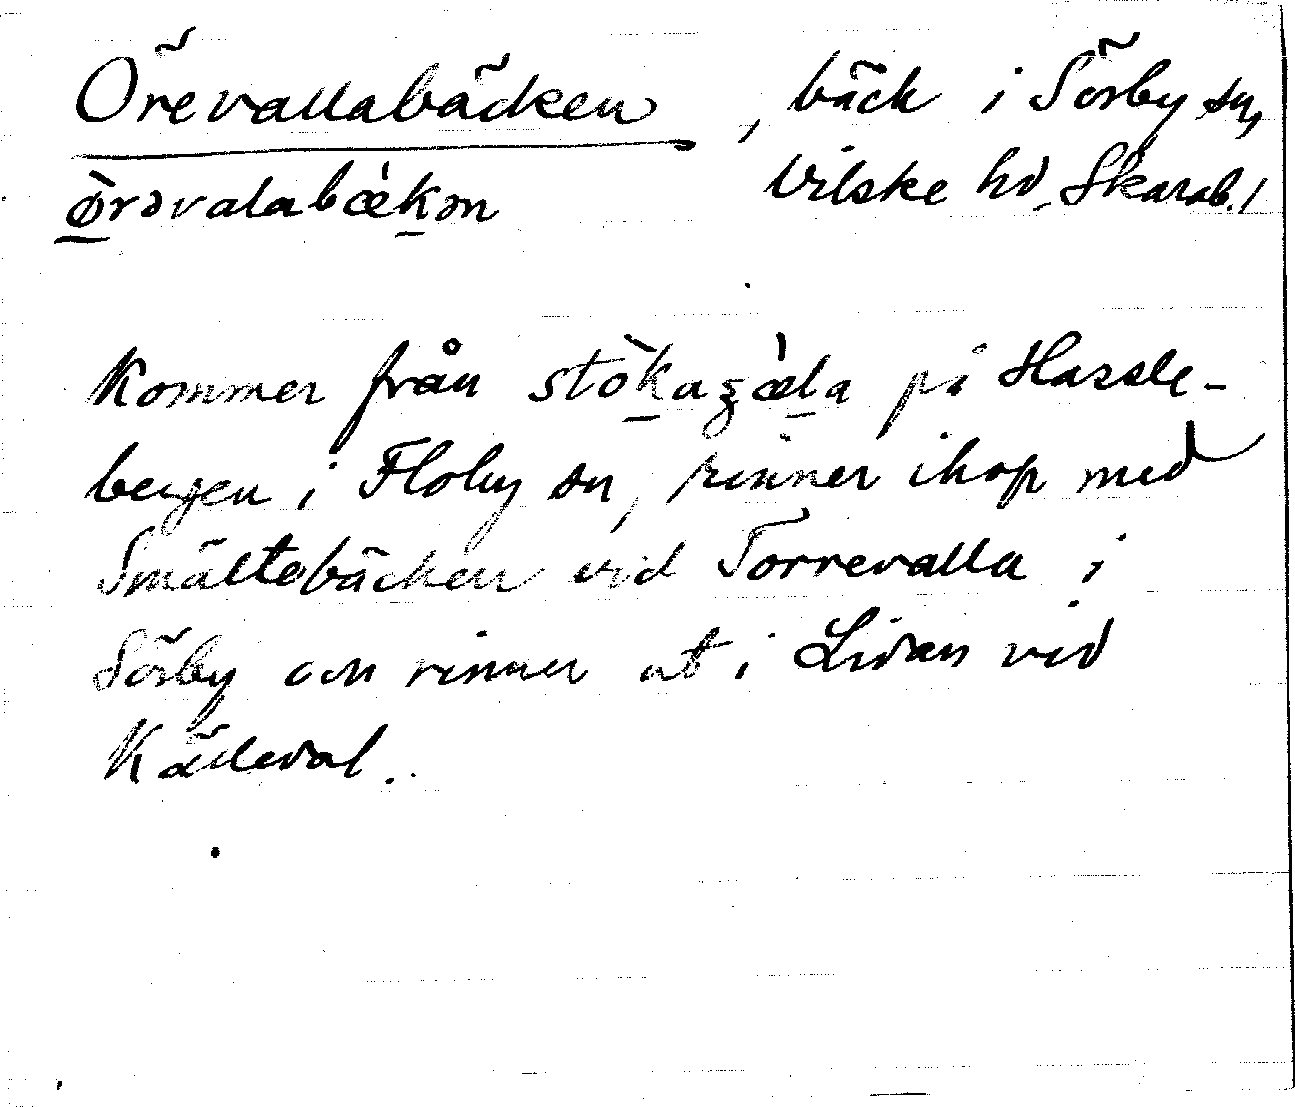 Örevallabäcken, bäck i Sörby sn,
ø̀rəvalabæ̀kən Vilske hd, Skarab. l
Kommer från stòkagæ̀la på Hassle-
bergen i Floby sn, rinner ihop med
Smältebäcken vid Torrevalla i
Sörby och rinner ut i Lidan vid
Källedal.